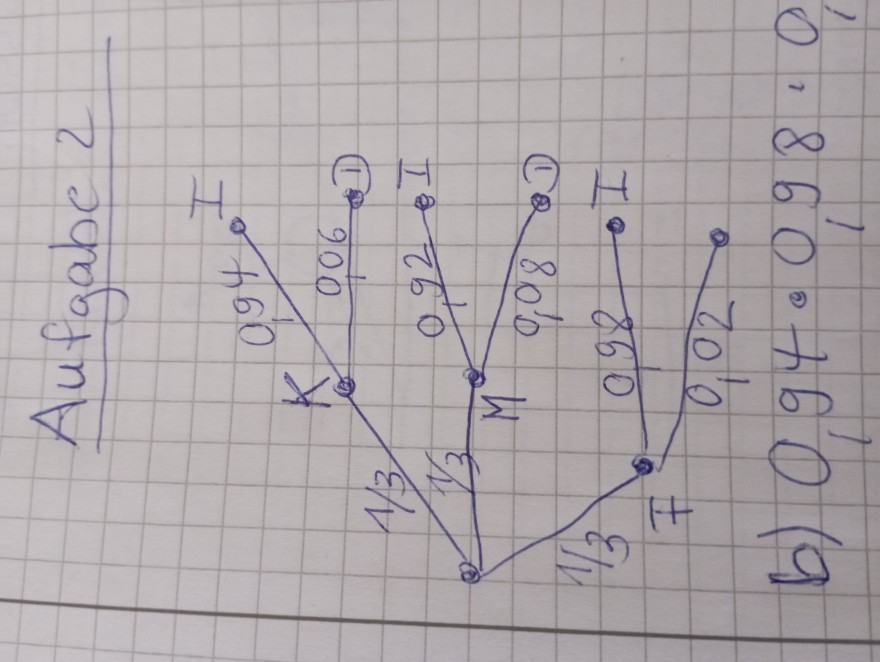 Aufgabe 2
I
0,94
K
0,06
D
1/3
I
0,92
1/3
M
0,08
D
I
0,98
1/3
F
0,02
b) 0,94 · 0,98 · 0,